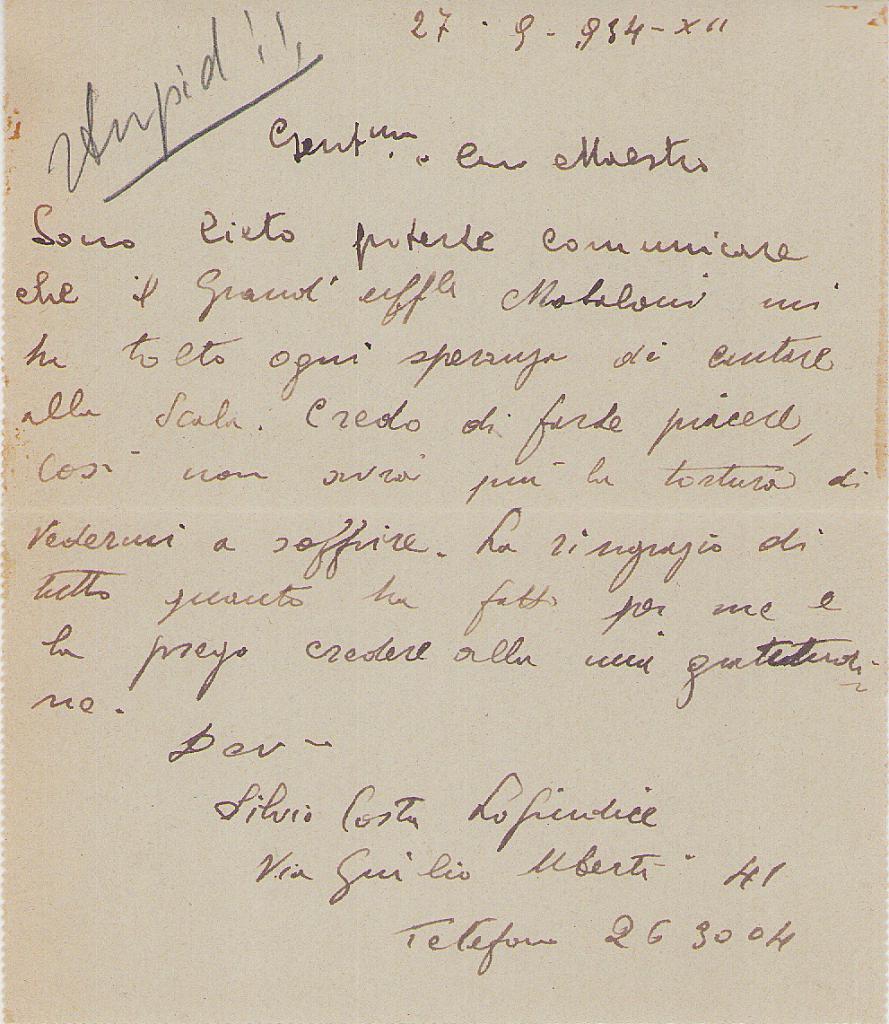 27 · 9 - 934 - XII
stupid!!
Gent.mo e Caro Maestro
Sono lieto poterle comunicare
che il Grand' uffle Mataloni mi
ha tolto ogni speranza di cantare
alla Scala. Credo di farle piacere,
così non avrà più la tortura di
vedermi a soffrire. La ringrazio di
tutto quanto ha fatto per me e
la prego credere alla mia gratitudi-
ne.
Dev-
Silvio Costa Lo Giudice
Via Giulio Uberti 41
Telefono 26 3004